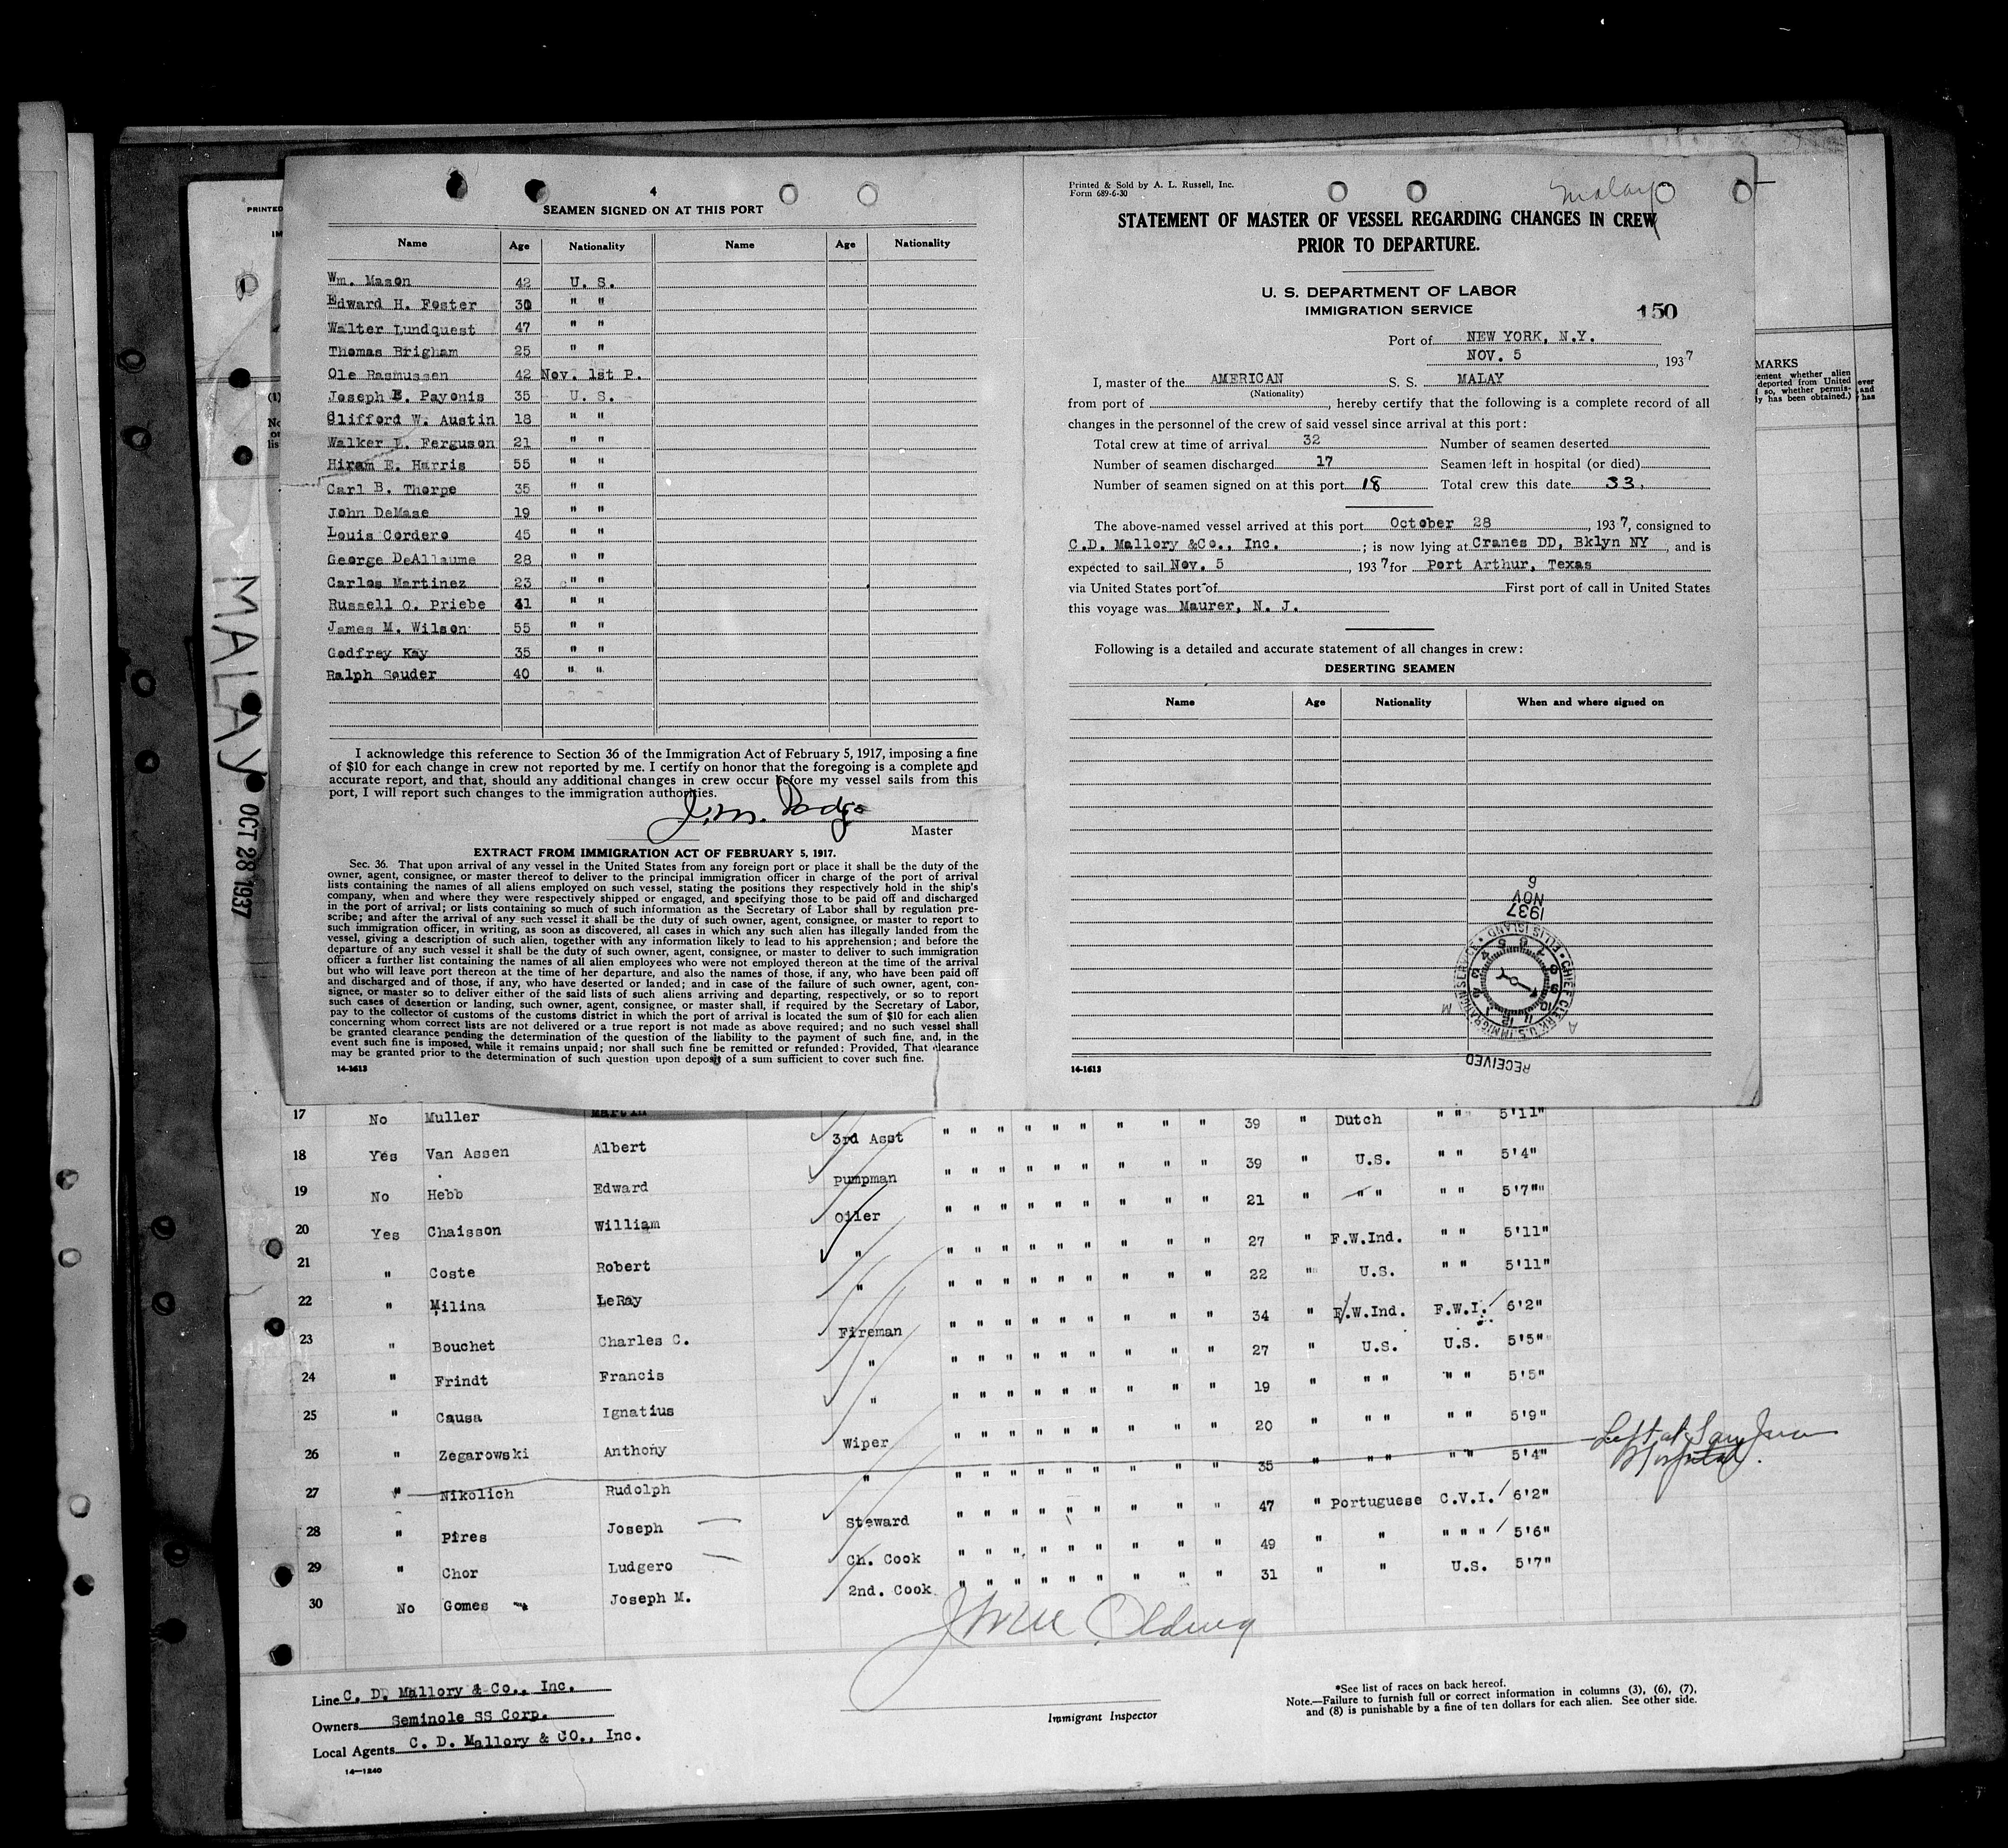 4
SEAMEN SIGNED ON AT THIS PORT
Name Age Nationality Name Age Nationality
Wm. Mason 42 U. S.
Edward H. Foster 30 " "
Walter Lundquest 47 " "
Thomas Brigham 25 " "
Ole Rasmussen 42 Nov. 1st P.
Joseph E. Payonis 35 U. S.
Clifford W. Austin 18 " "
Walker L. Ferguson 21 " "
Hiram E. Harris 55 " "
Carl B. Thorpe 35 " "
John DeMase 19 " "
Louis Cordero 45 " "
George DeAllaume 28 " "
Carlos Martinez 23 " "
Russell O. Priebe 41 " "
James M. Wilson 55 " "
Godfrey Kay 35 " "
Ralph Souder 40 " "
I acknowledge this reference to Section 36 of the Immigration Act of February 5, 1917, imposing a fine
of $10 for each change in crew not reported by me. I certify on honor that the foregoing is a complete and
accurate report, and that, should any additional changes in crew occur before my vessel sails from this
port, I will report such changes to the immigration authorities.
J.M.
Master
EXTRACT FROM IMMIGRATION ACT OF FEBRUARY 5, 1917.
Sec. 36. That upon arrival of any vessel in the United States from any foreign port or place it shall be the duty of the
owner, agent, consignee, or master thereof to deliver to the principal immigration officer in charge of the port of arrival
lists containing the names of all aliens employed on such vessel, stating the positions they respectively hold in the ship's
company, when and where they were respectively shipped or engaged, and specifying those to be paid off and discharged
in the port of arrival; or lists containing so much of such information as the Secretary of Labor shall by regulation pre-
scribe; and after the arrival of any such vessel it shall be the duty of such owner, agent, consignee, or master to report to
such immigration officer, in writing, as soon as discovered, all cases in which any such alien has illegally landed from the
vessel, giving a description of such alien, together with any information likely to lead to his apprehension; and before the
departure of any such vessel it shall be the duty of such owner, agent, consignee, or master to deliver to such immigration
officer a further list containing the names of all alien employees who were not employed thereon at the time of the arrival
but who will leave port thereon at the time of her departure, and also the names of those, if any, who have been paid off
and discharged and of those, if any, who have deserted or landed; and in case of the failure of such owner, agent, con-
signee, or master so to deliver either of the said lists of such aliens arriving and departing, respectively, or so to report
such cases of desertion or landing, such owner, agent, consignee, or master shall, if required by the Secretary of Labor,
pay to the collector of customs of the customs district in which the port of arrival is located the sum of $10 for each alien
concerning whom correct lists are not delivered or a true report is not made as above required; and no such vessel shall
be granted clearance pending the determination of the question of the liability to the payment of such fine, and, in the
event such fine is imposed, while it remains unpaid; nor shall such fine be remitted or refunded: Provided, That clearance
may be granted prior to the determination of such question upon deposit of a sum sufficient to cover such fine.
14-1613
Printed & Sold by A. L. Russell, Inc.
Form 689-6-30
Malay
STATEMENT OF MASTER OF VESSEL REGARDING CHANGES IN CREW
PRIOR TO DEPARTURE.
U. S. DEPARTMENT OF LABOR
IMMIGRATION SERVICE
150
Port of NEW YORK, N.Y.
NOV. 5, 1937
I, master of the AMERICAN S. S. MALAY
(Nationality)
from port of , hereby certify that the following is a complete record of all
changes in the personnel of the crew of said vessel since arrival at this port:
Total crew at time of arrival 32 Number of seamen deserted
Number of seamen discharged 17 Seamen left in hospital (or died)
Number of seamen signed on at this port 18 Total crew this date 33.
The above-named vessel arrived at this port October 28, 1937, consigned to
C.D. Mallory &Co., Inc. ; is now lying at Cranes DD, Bklyn NY, and is
expected to sail Nov. 5, 1937 for Port Arthur, Texas
via United States port of First port of call in United States
this voyage was Maurer, N. J.
Following is a detailed and accurate statement of all changes in crew:
DESERTING SEAMEN
Name Age Nationality When and where signed on
RECEIVED
A M
CHIEF CLERK U.S. IMMIGRATION SERVICE
ELLIS ISLAND
1937
NOV
6
14-1613
PRINTED
MARKS
MALAY
OCT 28 1937
17 No Muller Martin 3rd Asst " " " " " " " " " 39 " Dutch " " 5'11"
18 Yes Van Assen Albert Pumpman " " " " " " " " " 39 " U.S. " " 5'4"
19 No Hebb Edward Oiler " " " " " " " " " 21 " " " " " 5'7"
20 Yes Chaisson William " " " " " " " " " " 27 " F.W.Ind. " " 5'11"
21 " Coste Robert " " " " " " " " " " 22 " U.S. " " 5'11"
22 " Milina LeRay Fireman " " " " " " " " " 34 " F.W.Ind. F.W.I. 6'2"
23 " Bouchet Charles C. " " " " " " " " " " 27 " U.S. U.S. 5'5"
24 " Frindt Francis " " " " " " " " " " 19 " " " " " 5'5"
25 " Causa Ignatius Wiper " " " " " " " " " 20 " " " " " 5'9"
26 " Zegarowski Anthony " " " " " " " " " " 35 " " " " " 5'4" Left at San Juan
Hospital.
27 " Nikolich Rudolph Steward " " " " " " " " " 47 " Portuguese C.V.I. 6'2"
28 " Pires Joseph Ch. Cook " " " " " " " " " 49 " " " " " 5'6"
29 " Chor Ludgero 2nd. Cook " " " " " " " " " 31 " " U.S. 5'7"
30 No Gomes Joseph M.
Line C. D. Mallory & Co., Inc.
Owners Seminole SS Corp.
Local Agents C. D. Mallory & CO., Inc.
14-1240
Immigrant Inspector
*See list of races on back hereof.
Note.—Failure to furnish full or correct information in columns (3), (6), (7),
and (8) is punishable by a fine of ten dollars for each alien. See other side.